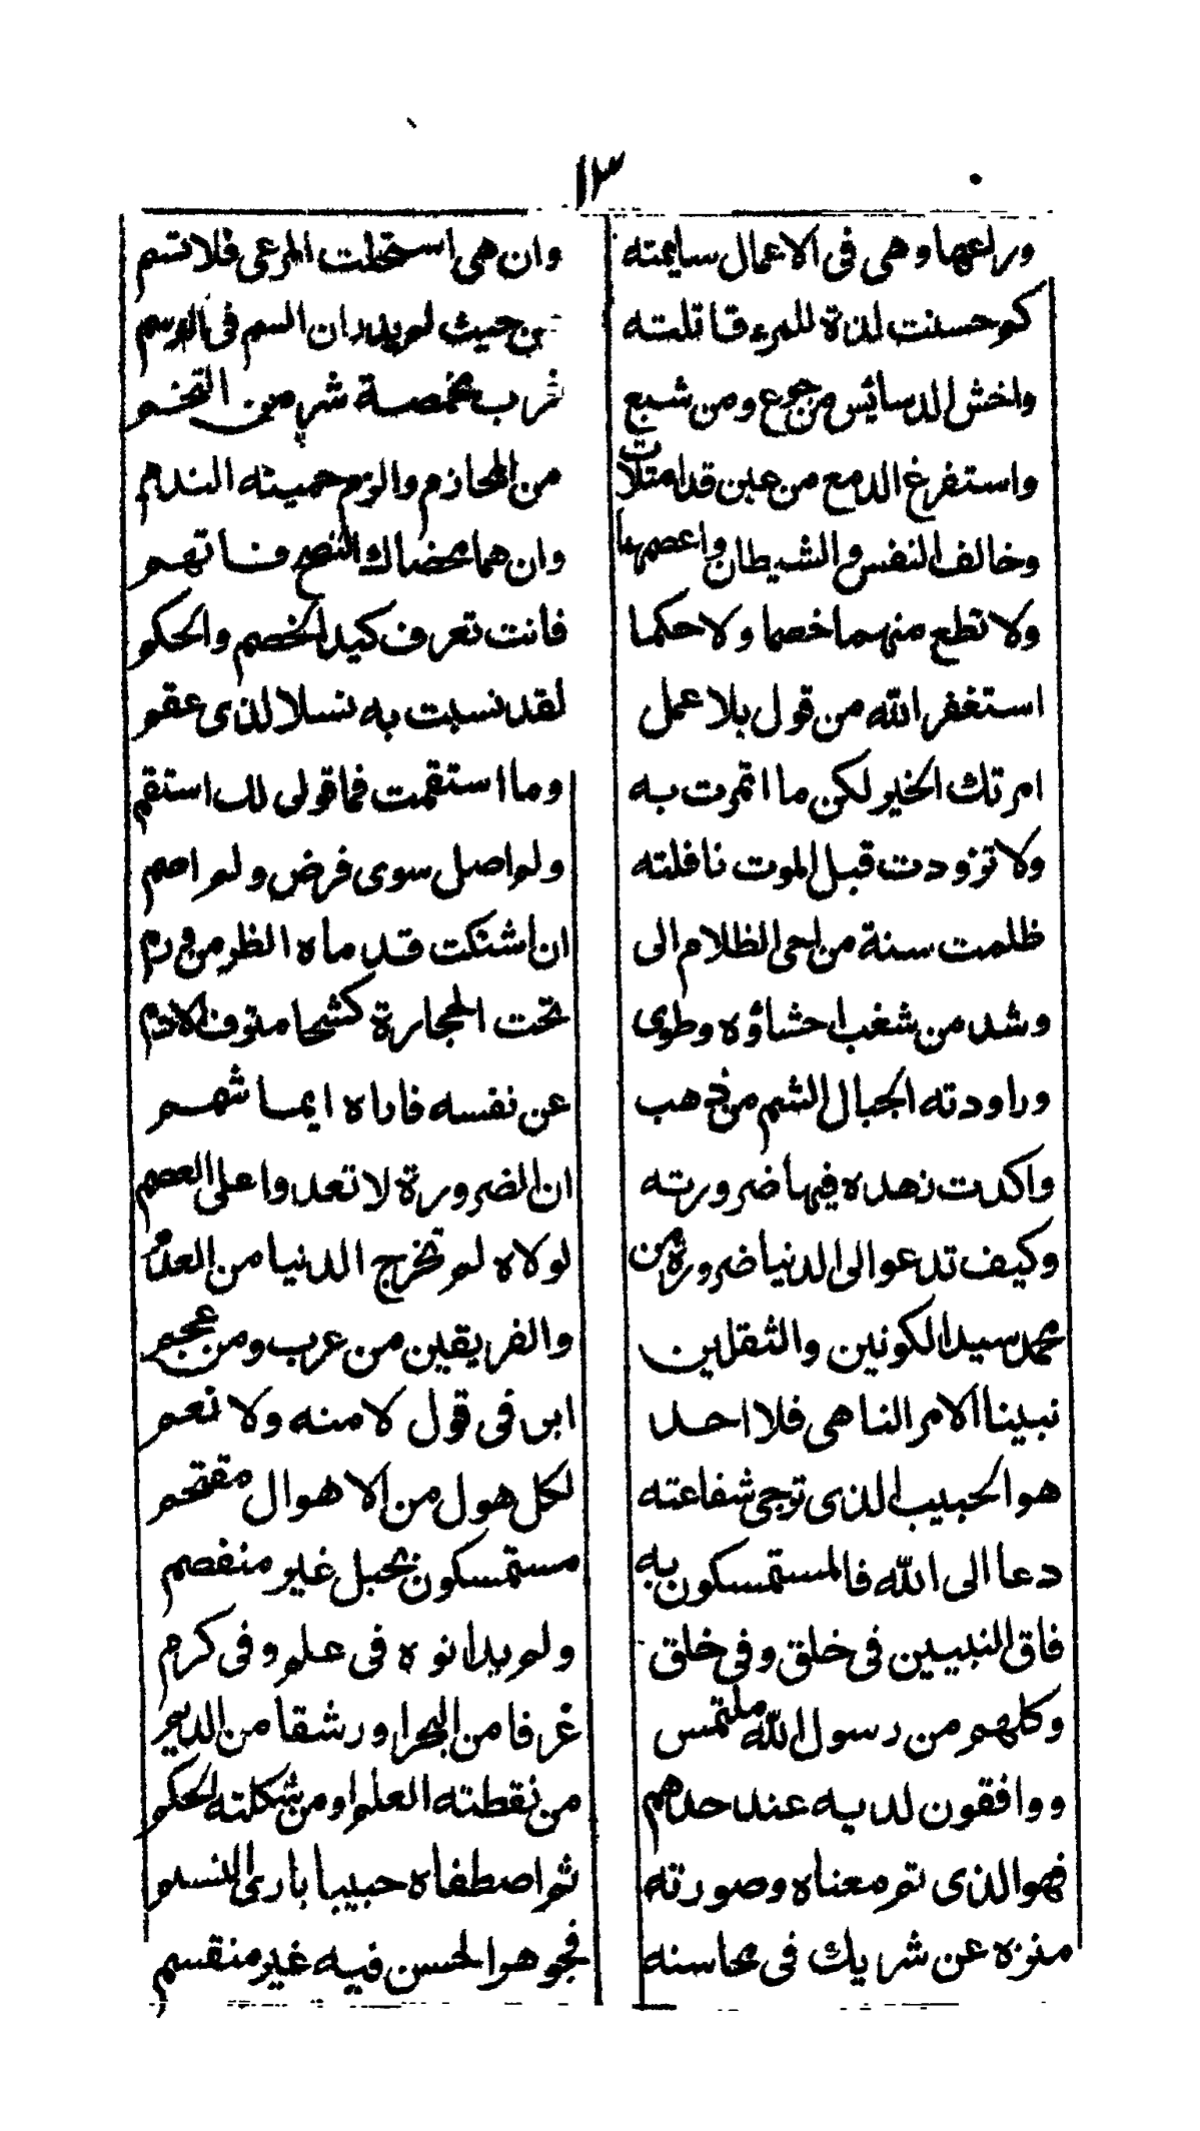 ١٣
وراعها وهى فى الاعمال سايمته وان هى استحلت المرعى فلا تسم
كم حسنت لذة للمرء قاتلته من حيث لم يدر ان السم فى الدسم
واخش الدسائس من جوع ومن شبع فرب مخمصة شر من التخم
واستفرغ الدمع من عين قد امتلأت من المحازم والزم حميته الندم
وخالف النفس والشيطان واعصهما وان هما محضاك النصح فاتهم
ولا تطع منهما خصما ولا حكما فانت تعرف كيد الخصم والحكم
استغفر الله من قول بلا عمل لقد نسبت به نسلا لذى عقم
امرتك الخير لكن ما اتمرت به وما استقمت فما قولى لك استقم
ولا تزودت قبل الموت نافلته ولم اصل سوى فرض ولم اصم
ظلمت سنة من احى الظلام الى ان اشتكت قدماه الظر من ورم
وشد من شغب احشاؤه وطوى تحت الحجارة كشحا متوف الادم
وراودته الجبال الشم من ذهب عن نفسه فاراه ايما شهم
واكدت زهده فيها ضرورته ان الضرورة لا تعدوا على العصم
وكيف تدعوا الى الدنيا ضرورة من لولاه لم تخرج الدنيا من العدم
محمد سيد الكونين والثقلين والفريقين من عرب ومن عجم
نبينا الامر الناهى فلا احد ابر فى قول لا منه ولا نعم
هو الحبيب الذى ترجى شفاعته لكل هول من الاهوال مقتحم
دعا الى الله فالمستمسكون به مستمسكون بحبل غير منفصم
فاق النبيين فى خلق وفى خلق ولم يدانوه فى علم وفى كرم
وكلهم من رسول الله ملتمس غرفا من البحر او رشقا من الديم
وواقفون لديه عند حدهم من نقطته العلم او من شكلته الحكم
فهو الذى تم معناه وصورته ثم اصطفاه حبيبا بارئ النسم
منزه عن شريك فى محاسنه فجوهر الحسن فيه غير منقسم